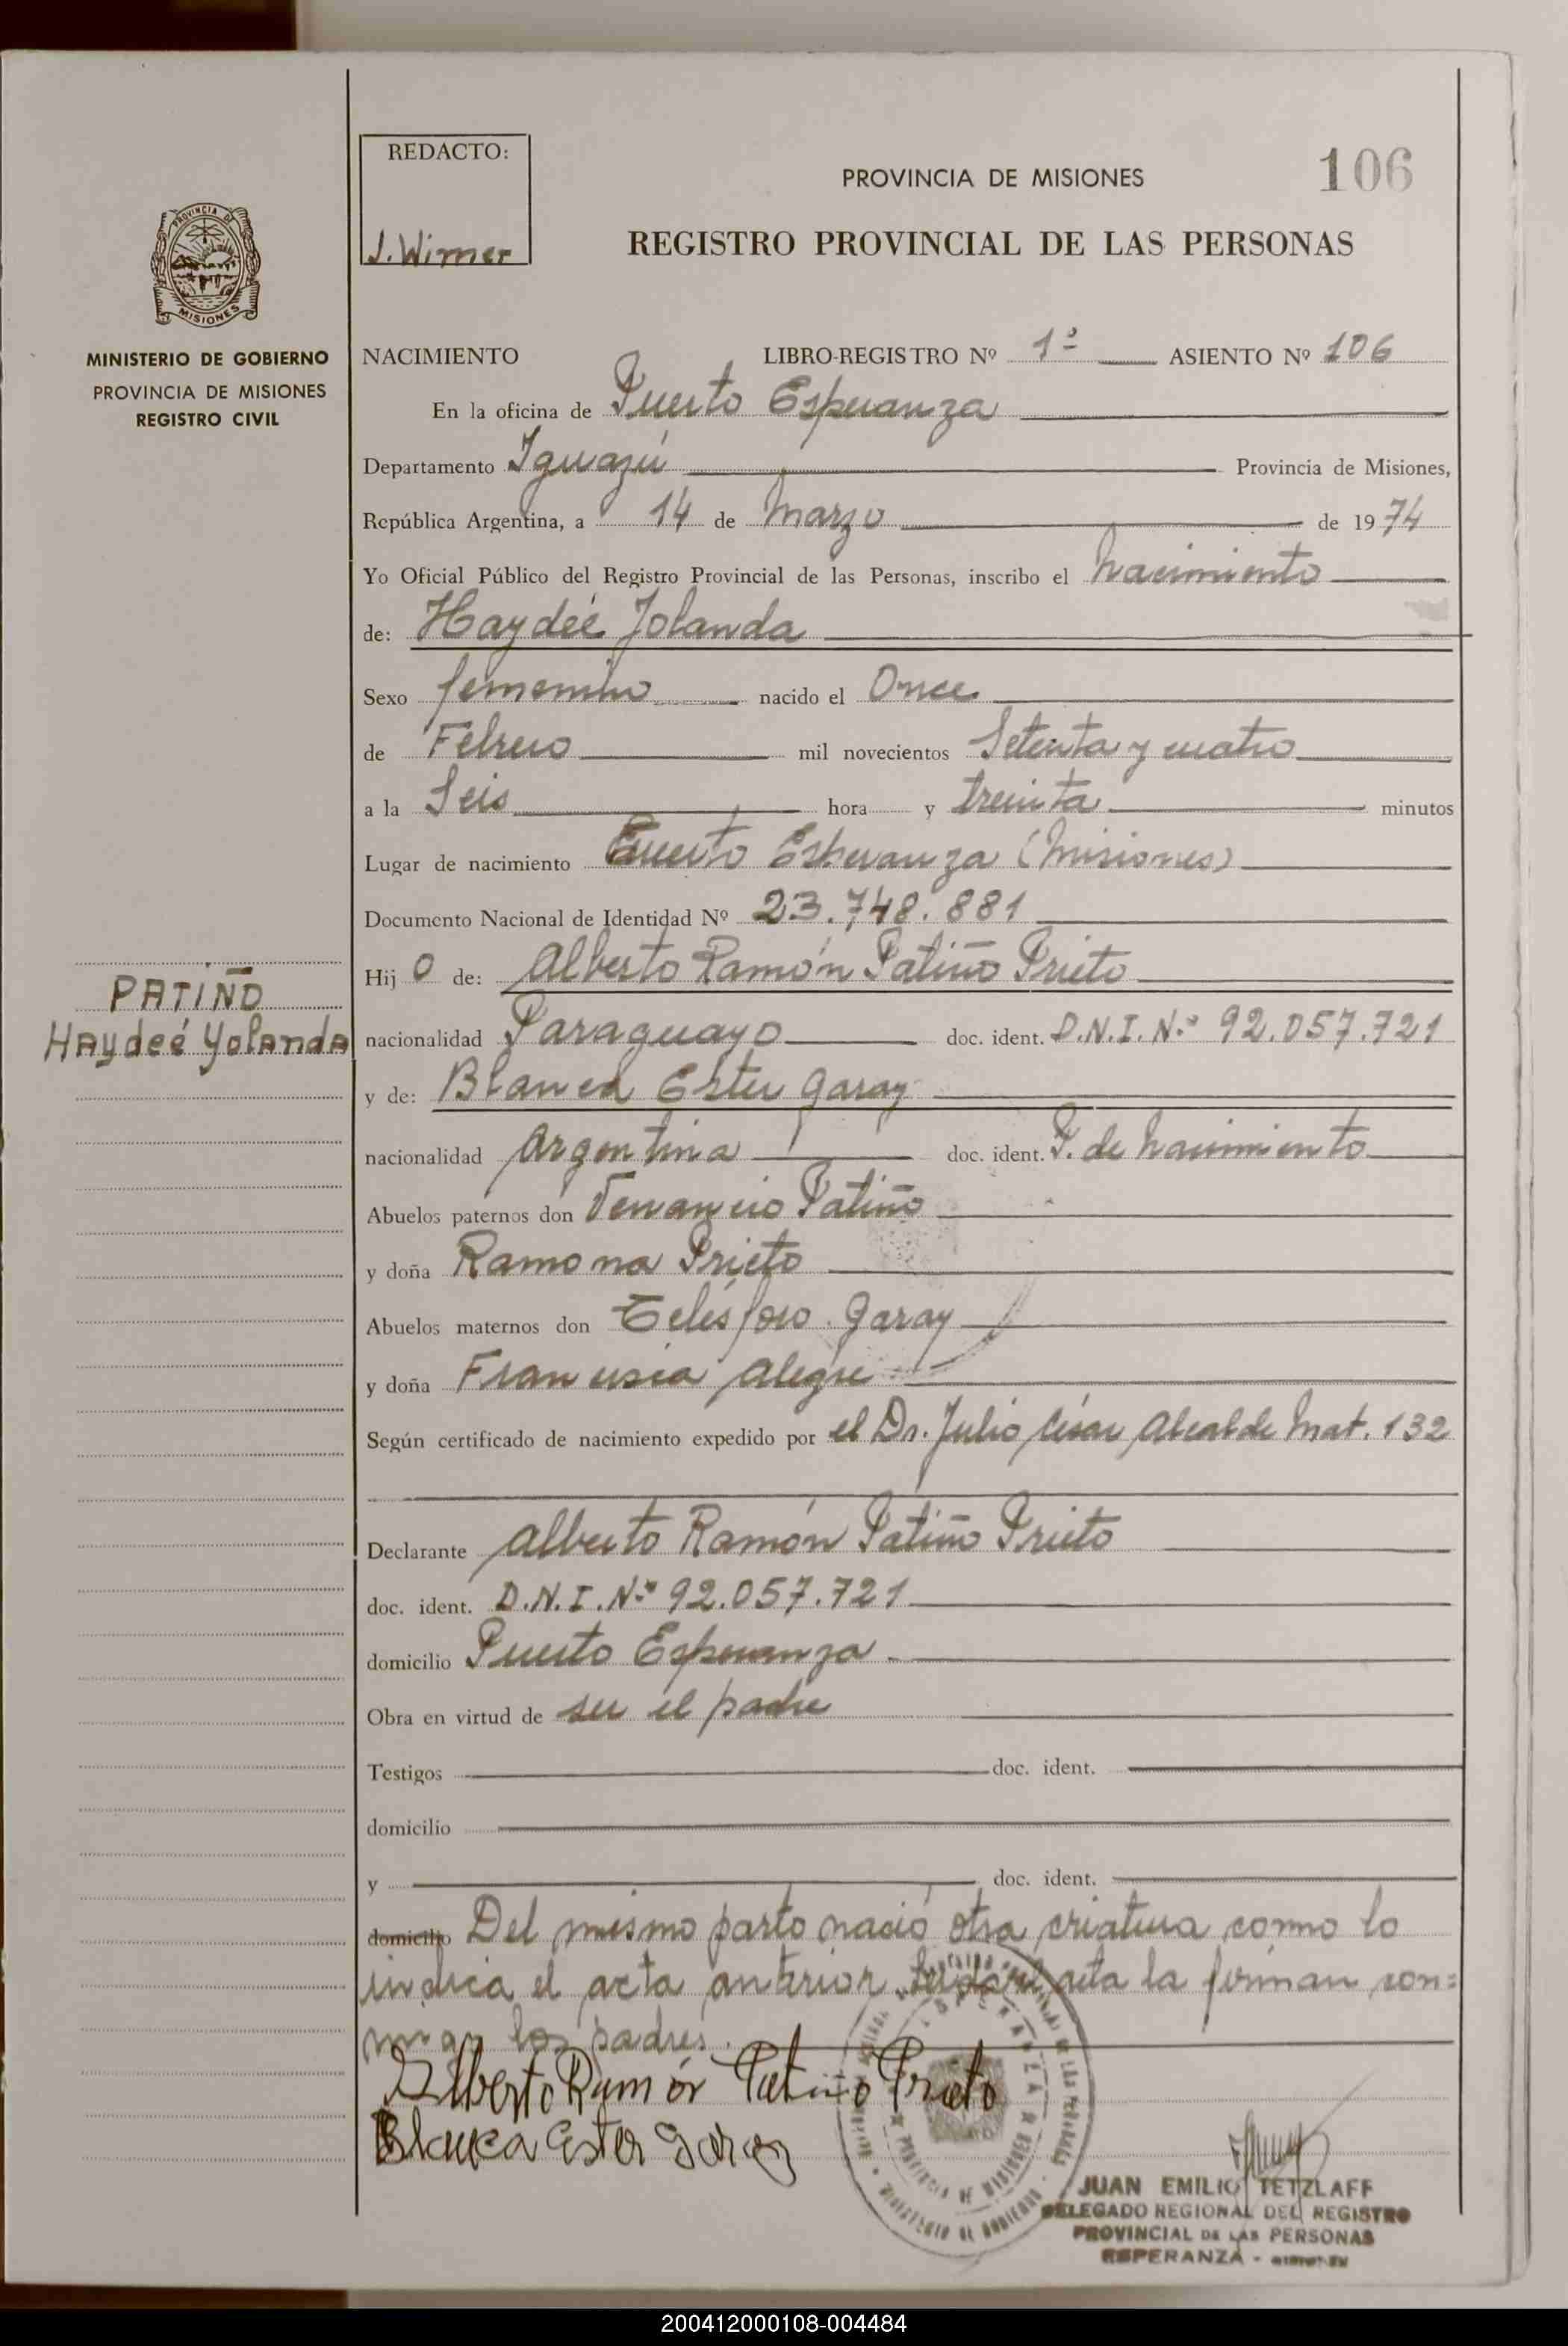 REDACTO:
J. Wirner
PROVINCIA DE MISIONES
106
REGISTRO PROVINCIAL DE LAS PERSONAS
PROVINCIA DE
MISIONES
MINISTERIO DE GOBIERNO
PROVINCIA DE MISIONES
REGISTRO CIVIL
NACIMIENTO LIBRO-REGISTRO Nº 1º ASIENTO Nº 106
En la oficina de Puerto Esperanza
Departamento Iguazú Provincia de Misiones,
República Argentina, a 14 de Marzo de 1974
Yo Oficial Público del Registro Provincial de las Personas, inscribo el Nacimiento
de: Haydeé Yolanda
Sexo femenino nacido el Once
de Febrero mil novecientos Setenta y cuatro
a la Seis hora y treinta minutos
Lugar de nacimiento Puerto Esperanza (Misiones)
Documento Nacional de Identidad Nº 23.748.881
Hij O de: Alberto Ramón Patiño Prieto
PATIÑO
Haydeé Yolanda
nacionalidad Paraguayo doc. ident. D.N.I. Nº 92.057.721
y de: Blanca Ester Garay
nacionalidad Argentina doc. ident. P. de Nacimiento
Abuelos paternos don Venancio Patiño
y doña Ramona Prieto
Abuelos maternos don Telésforo Garay
y doña Francisca Alegre
Según certificado de nacimiento expedido por el Dr. Julio César Alcalde Mat. 132
Declarante Alberto Ramón Patiño Prieto
doc. ident. D.N.I. Nº 92.057.721
domicilio Puerto Esperanza
Obra en virtud de ser el padre
Testigos doc. ident.
domicilio
y doc. ident.
domicilio Del mismo parto nació otra criatura como lo
indica el acta anterior. acta la firman con=
migo los padres.
Alberto Ramón Patiño Prieto
Blanca Ester Garay
PROVINCIA DE MISIONES
MINISTERIO DE GOBIERNO
JUAN EMILIO TETZLAFF
DELEGADO REGIONAL DEL REGISTRO
PROVINCIAL DE LAS PERSONAS
ESPERANZA -
200412000108-004484